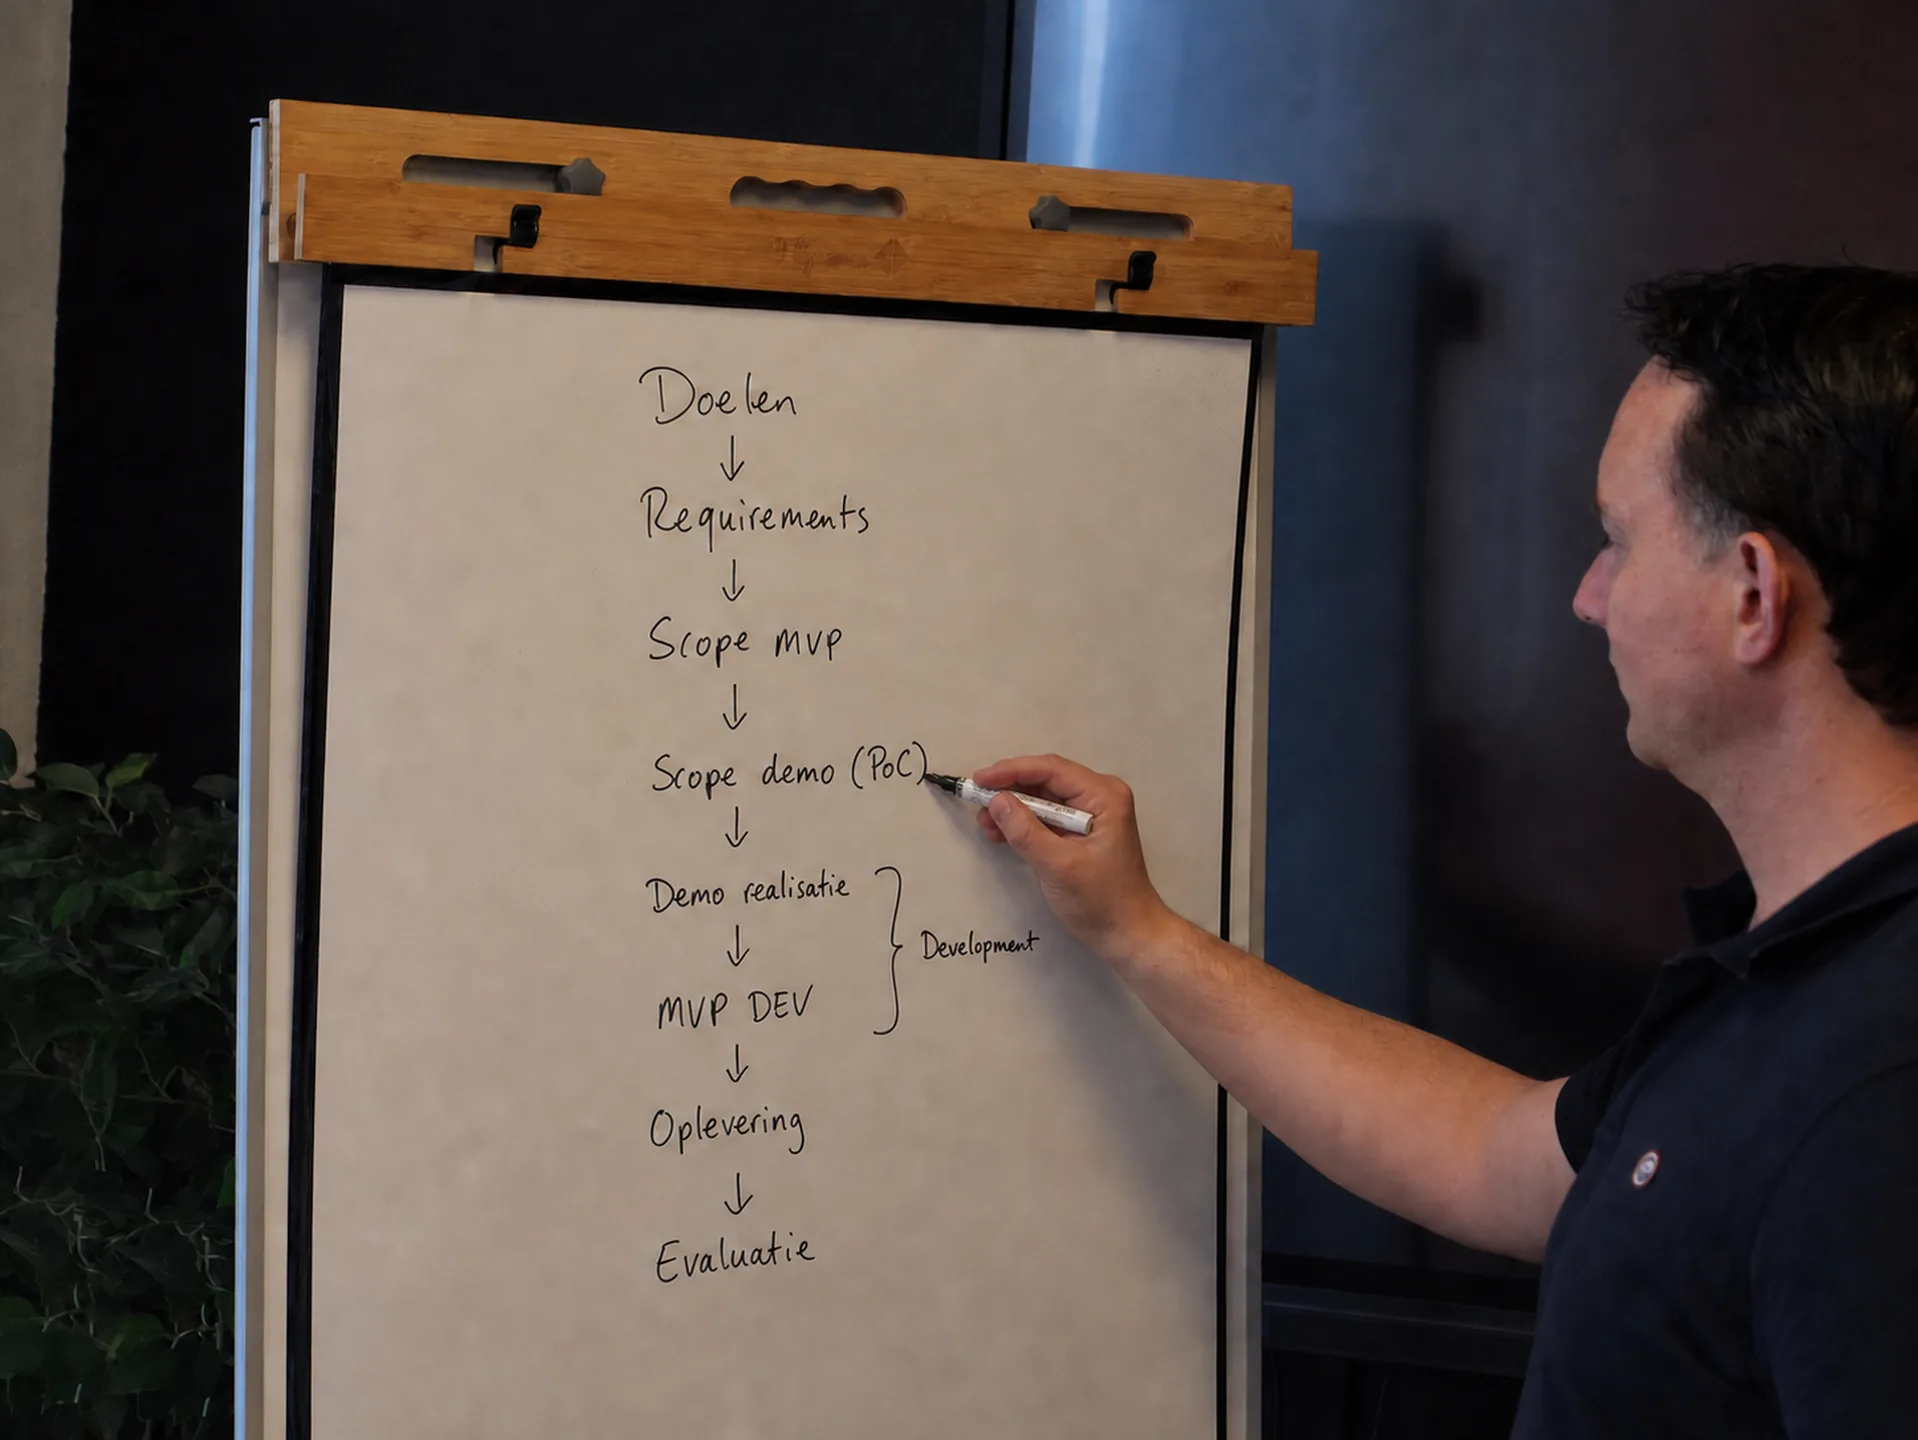 Doelen
↓
Requirements
↓
Scope MVP
↓
Scope demo (PoC)
↓
Demo realisatie
↓
Development
MVP DEV
↓
Oplevering
↓
Evaluatie